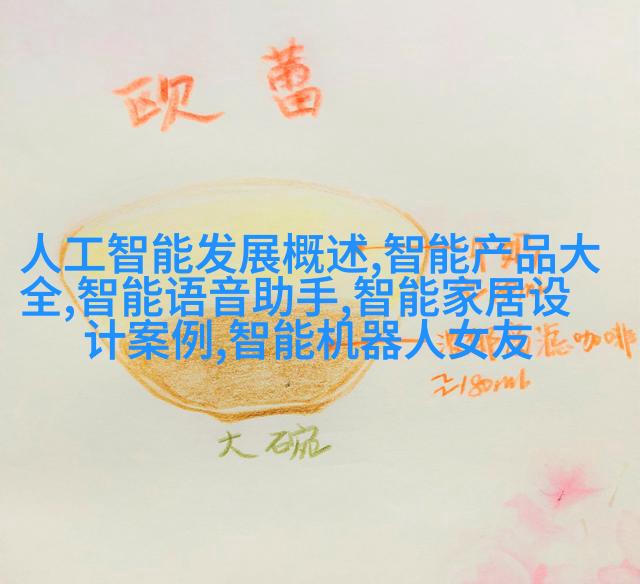 欧蕾
人工智能发展概述,智能产品大
全,智能语音助手,智能家居设
计案例,智能机器人女友
咖啡
180ml
大碗